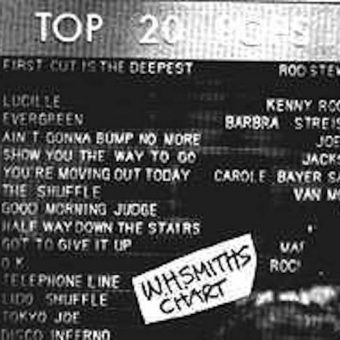 TOP 20 POPS
FIRST CUT IS THE DEEPEST ROD STEW
LUCILLE KENNY ROG
EVERGREEN BARBRA STREIS
AIN T GONNA BUMP NO MORE JOE
SHOW YOU THE WAY TO GO JACKS
YOU'RE MOVING OUT TODAY CAROLE BAYER SA
THE SHUFFLE VAN M
GOOD MORNING JUDGE
HALF WAY DOWN THE STAIRS
GOT TO GIVE IT UP MAR
O.K. ROCK
TELEPHONE LINE
LIDO SHUFFLE
TOKYO JOE
DISCO INFERNO
WHSMITHS
CHART